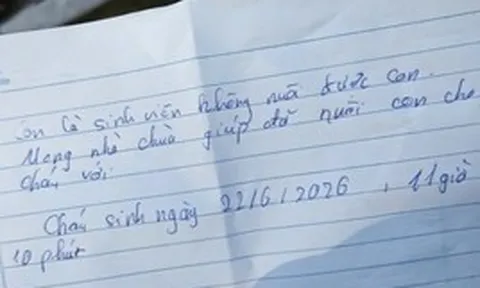 Con là sinh viên không nuôi được con.
Mong nhà chùa giúp đỡ nuôi con cho
cháu với.
Cháu sinh ngày 22/6/2026, 11 giờ
10 phút